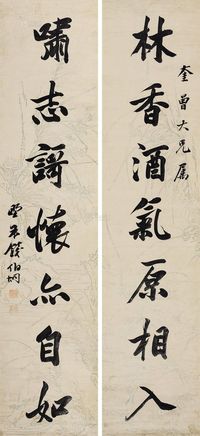 奎曾大兄属
林香酒氣原相入
嘯志謌懷亦自如
錢伯坰